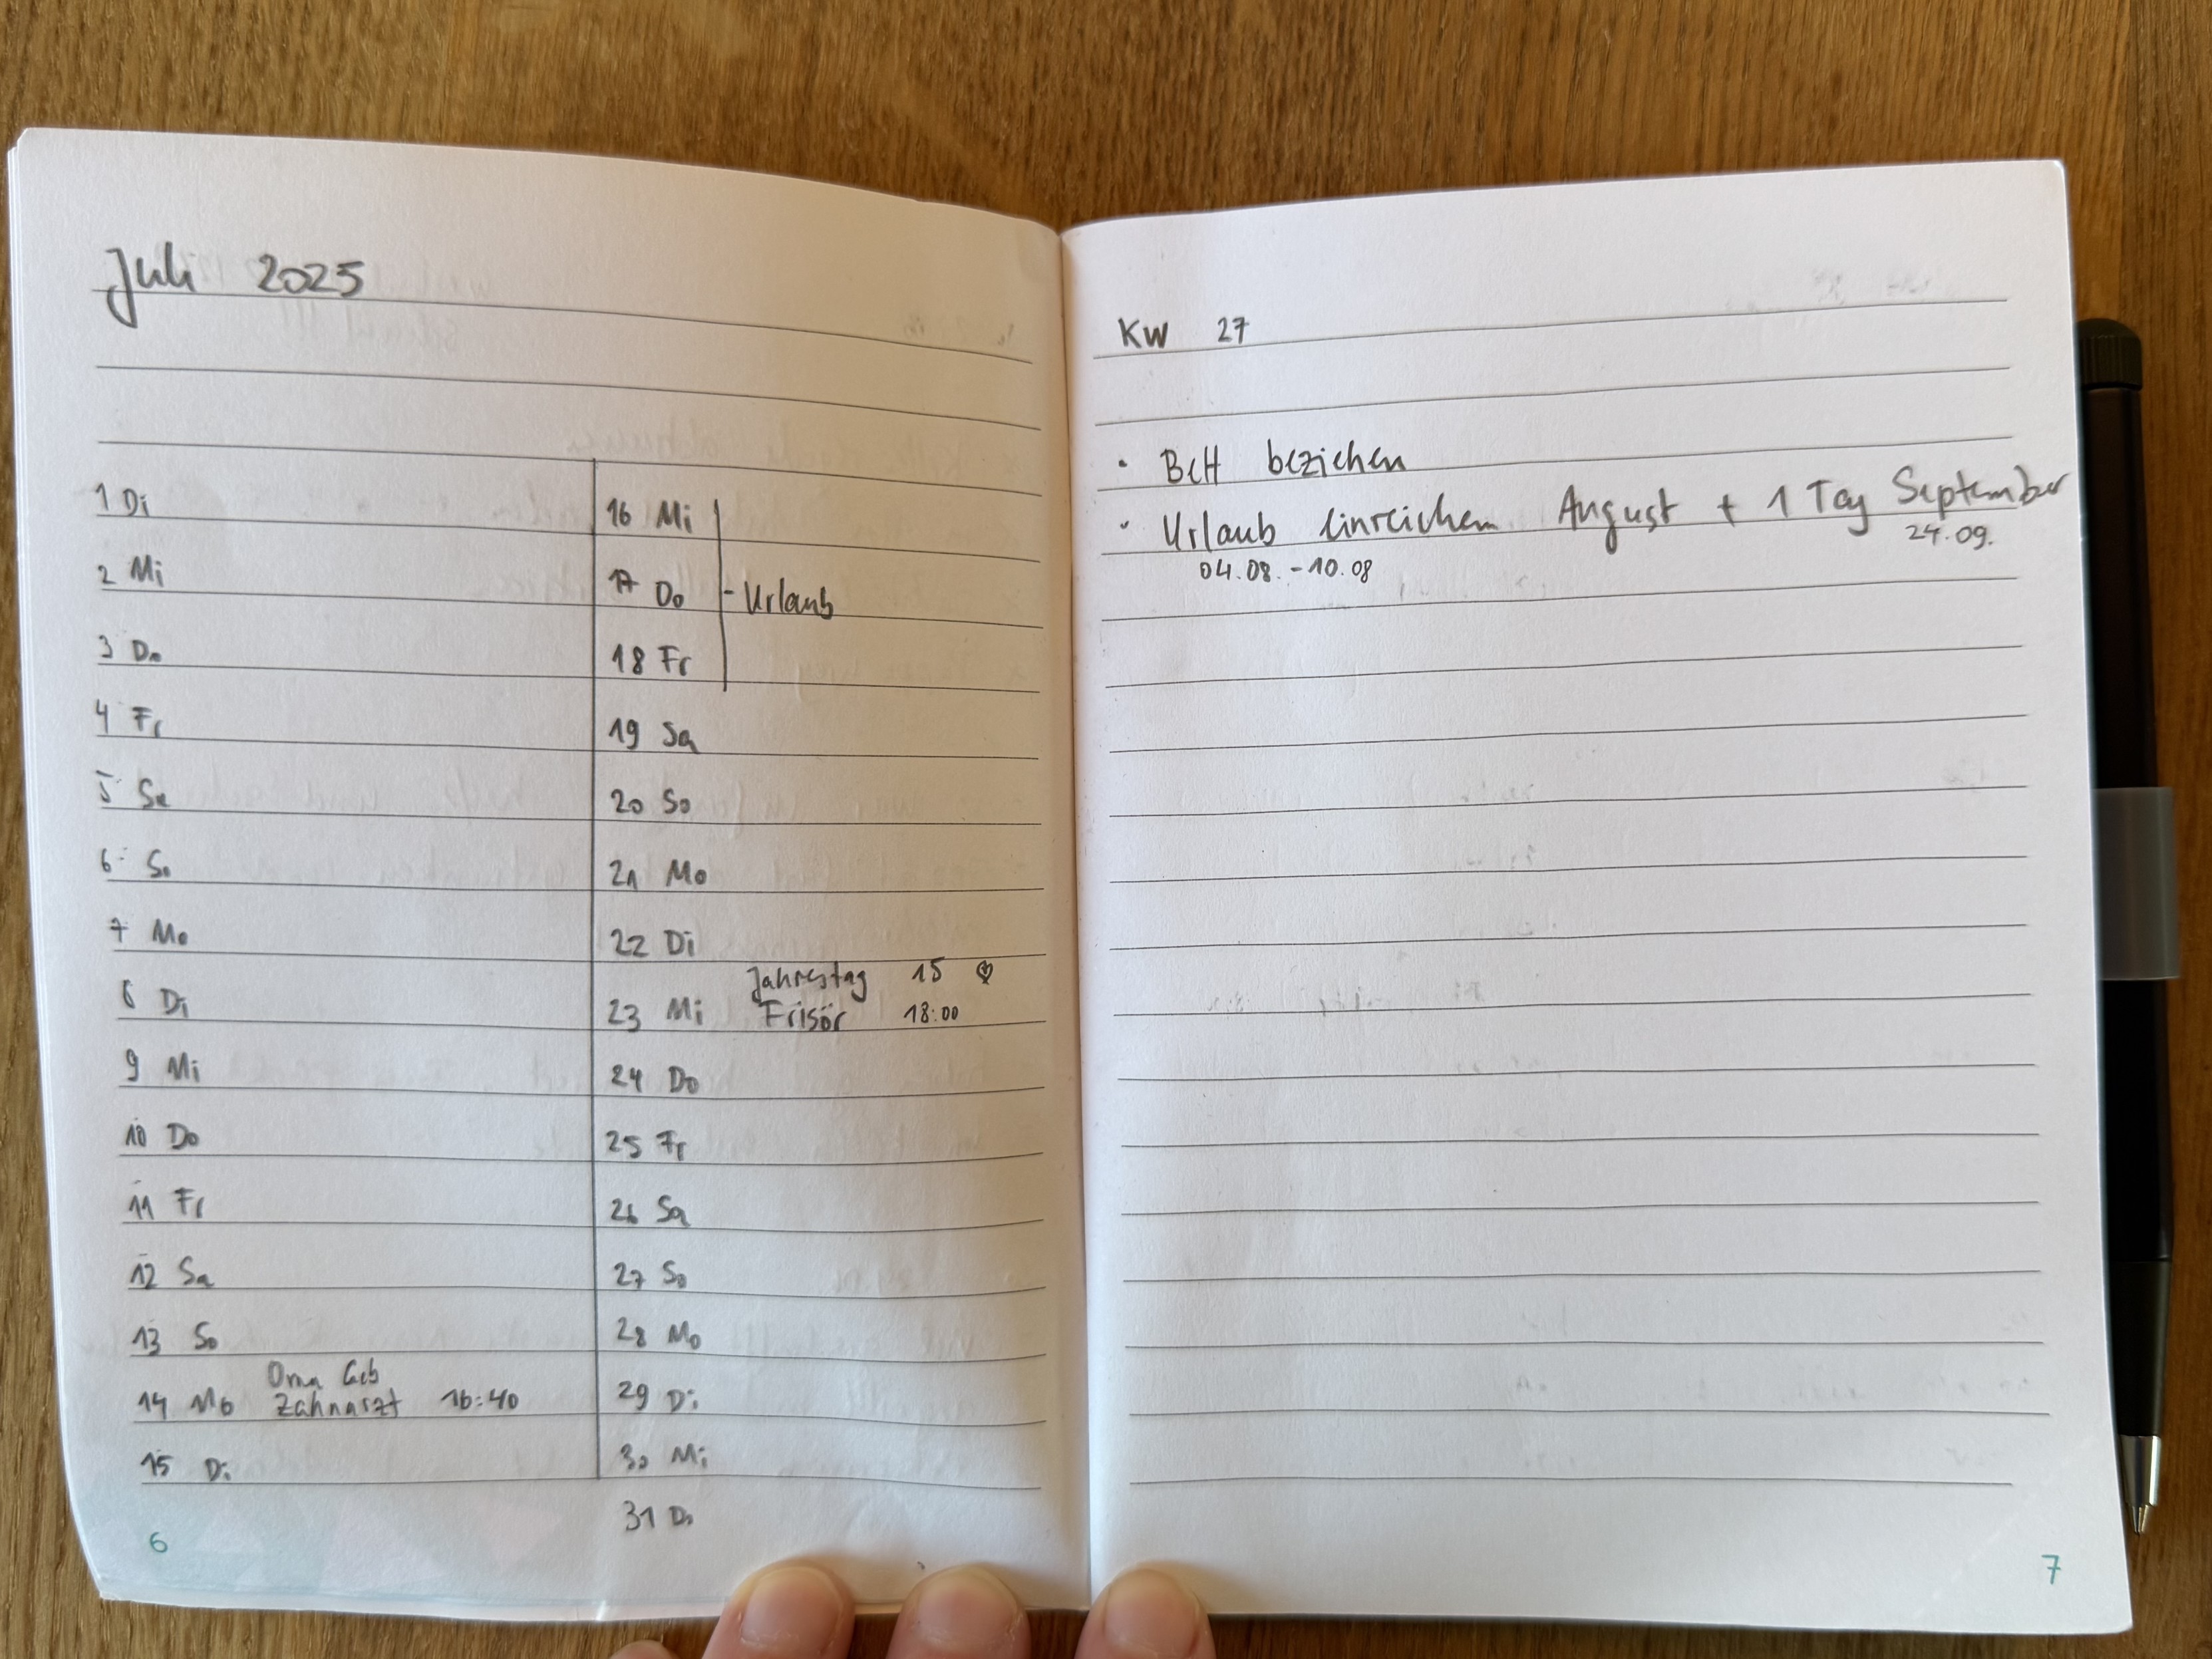 Juli 2025
1 Di
2 Mi
3 Do
4 Fr
5 Sa
6 So
7 Mo
8 Di
9 Mi
10 Do
11 Fr
12 Sa
13 So
Oma Geb
14 Mo Zahnarzt 16:40
15 Di
16 Mi
17 Do - Urlaub
18 Fr
19 Sa
20 So
21 Mo
22 Di
Jahrestag 15 ♡
23 Mi Frisör 18:00
24 Do
25 Fr
26 Sa
27 So
28 Mo
29 Di
30 Mi
31 Do
6
KW 27
• Bett beziehen
• Urlaub einreichen August + 1 Tag September
04.08. - 10.08 24.09.
7